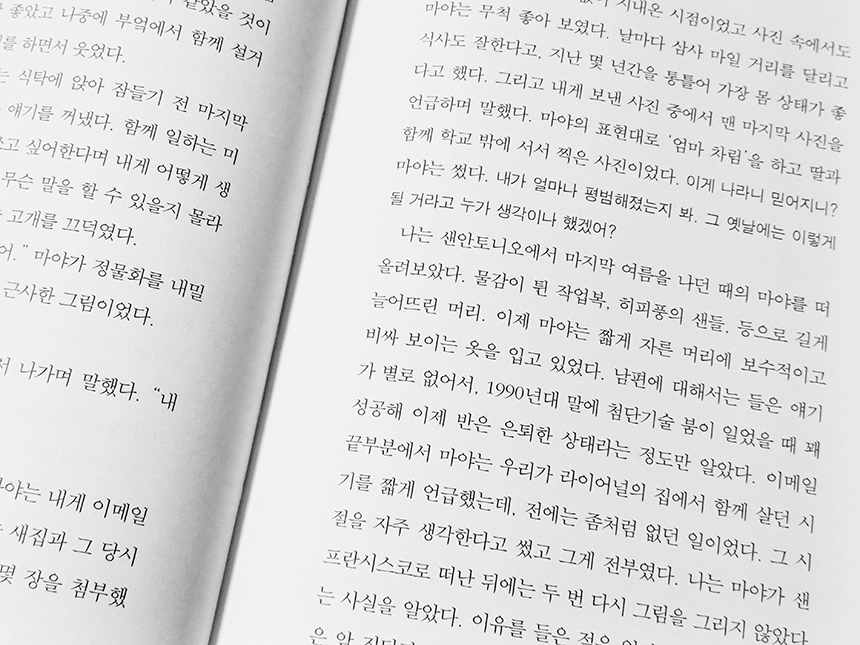 같았을 것이
좋았고 나중에 부엌에서 함께 설거
를 하면서 웃었다.
는 식탁에 앉아 잠들기 전 마지막
얘기를 꺼냈다. 함께 일하는 미
고 싶어한다며 내게 어떻게 생
무슨 말을 할 수 있을지 몰라
고개를 끄덕였다.
어.” 마야가 정물화를 내밀
근사한 그림이었다.
서 나가며 말했다. “내
마야는 내게 이메일
새집과 그 당시
몇 장을 첨부했
지내온 시점이었고 사진 속에서도
마야는 무척 좋아 보였다. 날마다 삼사 마일 거리를 달리고
식사도 잘한다고, 지난 몇 년간을 통틀어 가장 몸 상태가 좋
다고 했다. 그리고 내게 보낸 사진 중에서 맨 마지막 사진을
언급하며 말했다. 마야의 표현대로 ‘엄마 차림’을 하고 딸과
함께 학교 밖에 서서 찍은 사진이었다. 이게 나라니 믿어지니?
마야는 썼다. 내가 얼마나 평범해졌는지 봐. 그 옛날에는 이렇게
될 거라고 누가 생각이나 했겠어?
나는 샌안토니오에서 마지막 여름을 나던 때의 마야를 떠
올려보았다. 물감이 튄 작업복, 히피풍의 샌들, 등으로 길게
늘어뜨린 머리. 이제 마야는 짧게 자른 머리에 보수적이고
비싸 보이는 옷을 입고 있었다. 남편에 대해서는 들은 얘기
가 별로 없어서, 1990년대 말에 첨단기술 붐이 일었을 때 꽤
성공해 이제 반은 은퇴한 상태라는 정도만 알았다. 이메일
끝부분에서 마야는 우리가 라이어널의 집에서 함께 살던 시
기를 짧게 언급했는데, 전에는 좀처럼 없던 일이었다. 그 시
절을 자주 생각한다고 썼고 그게 전부였다. 나는 마야가 샌
프란시스코로 떠난 뒤에는 두 번 다시 그림을 그리지 않았다
는 사실을 알았다. 이유를 들은 적은